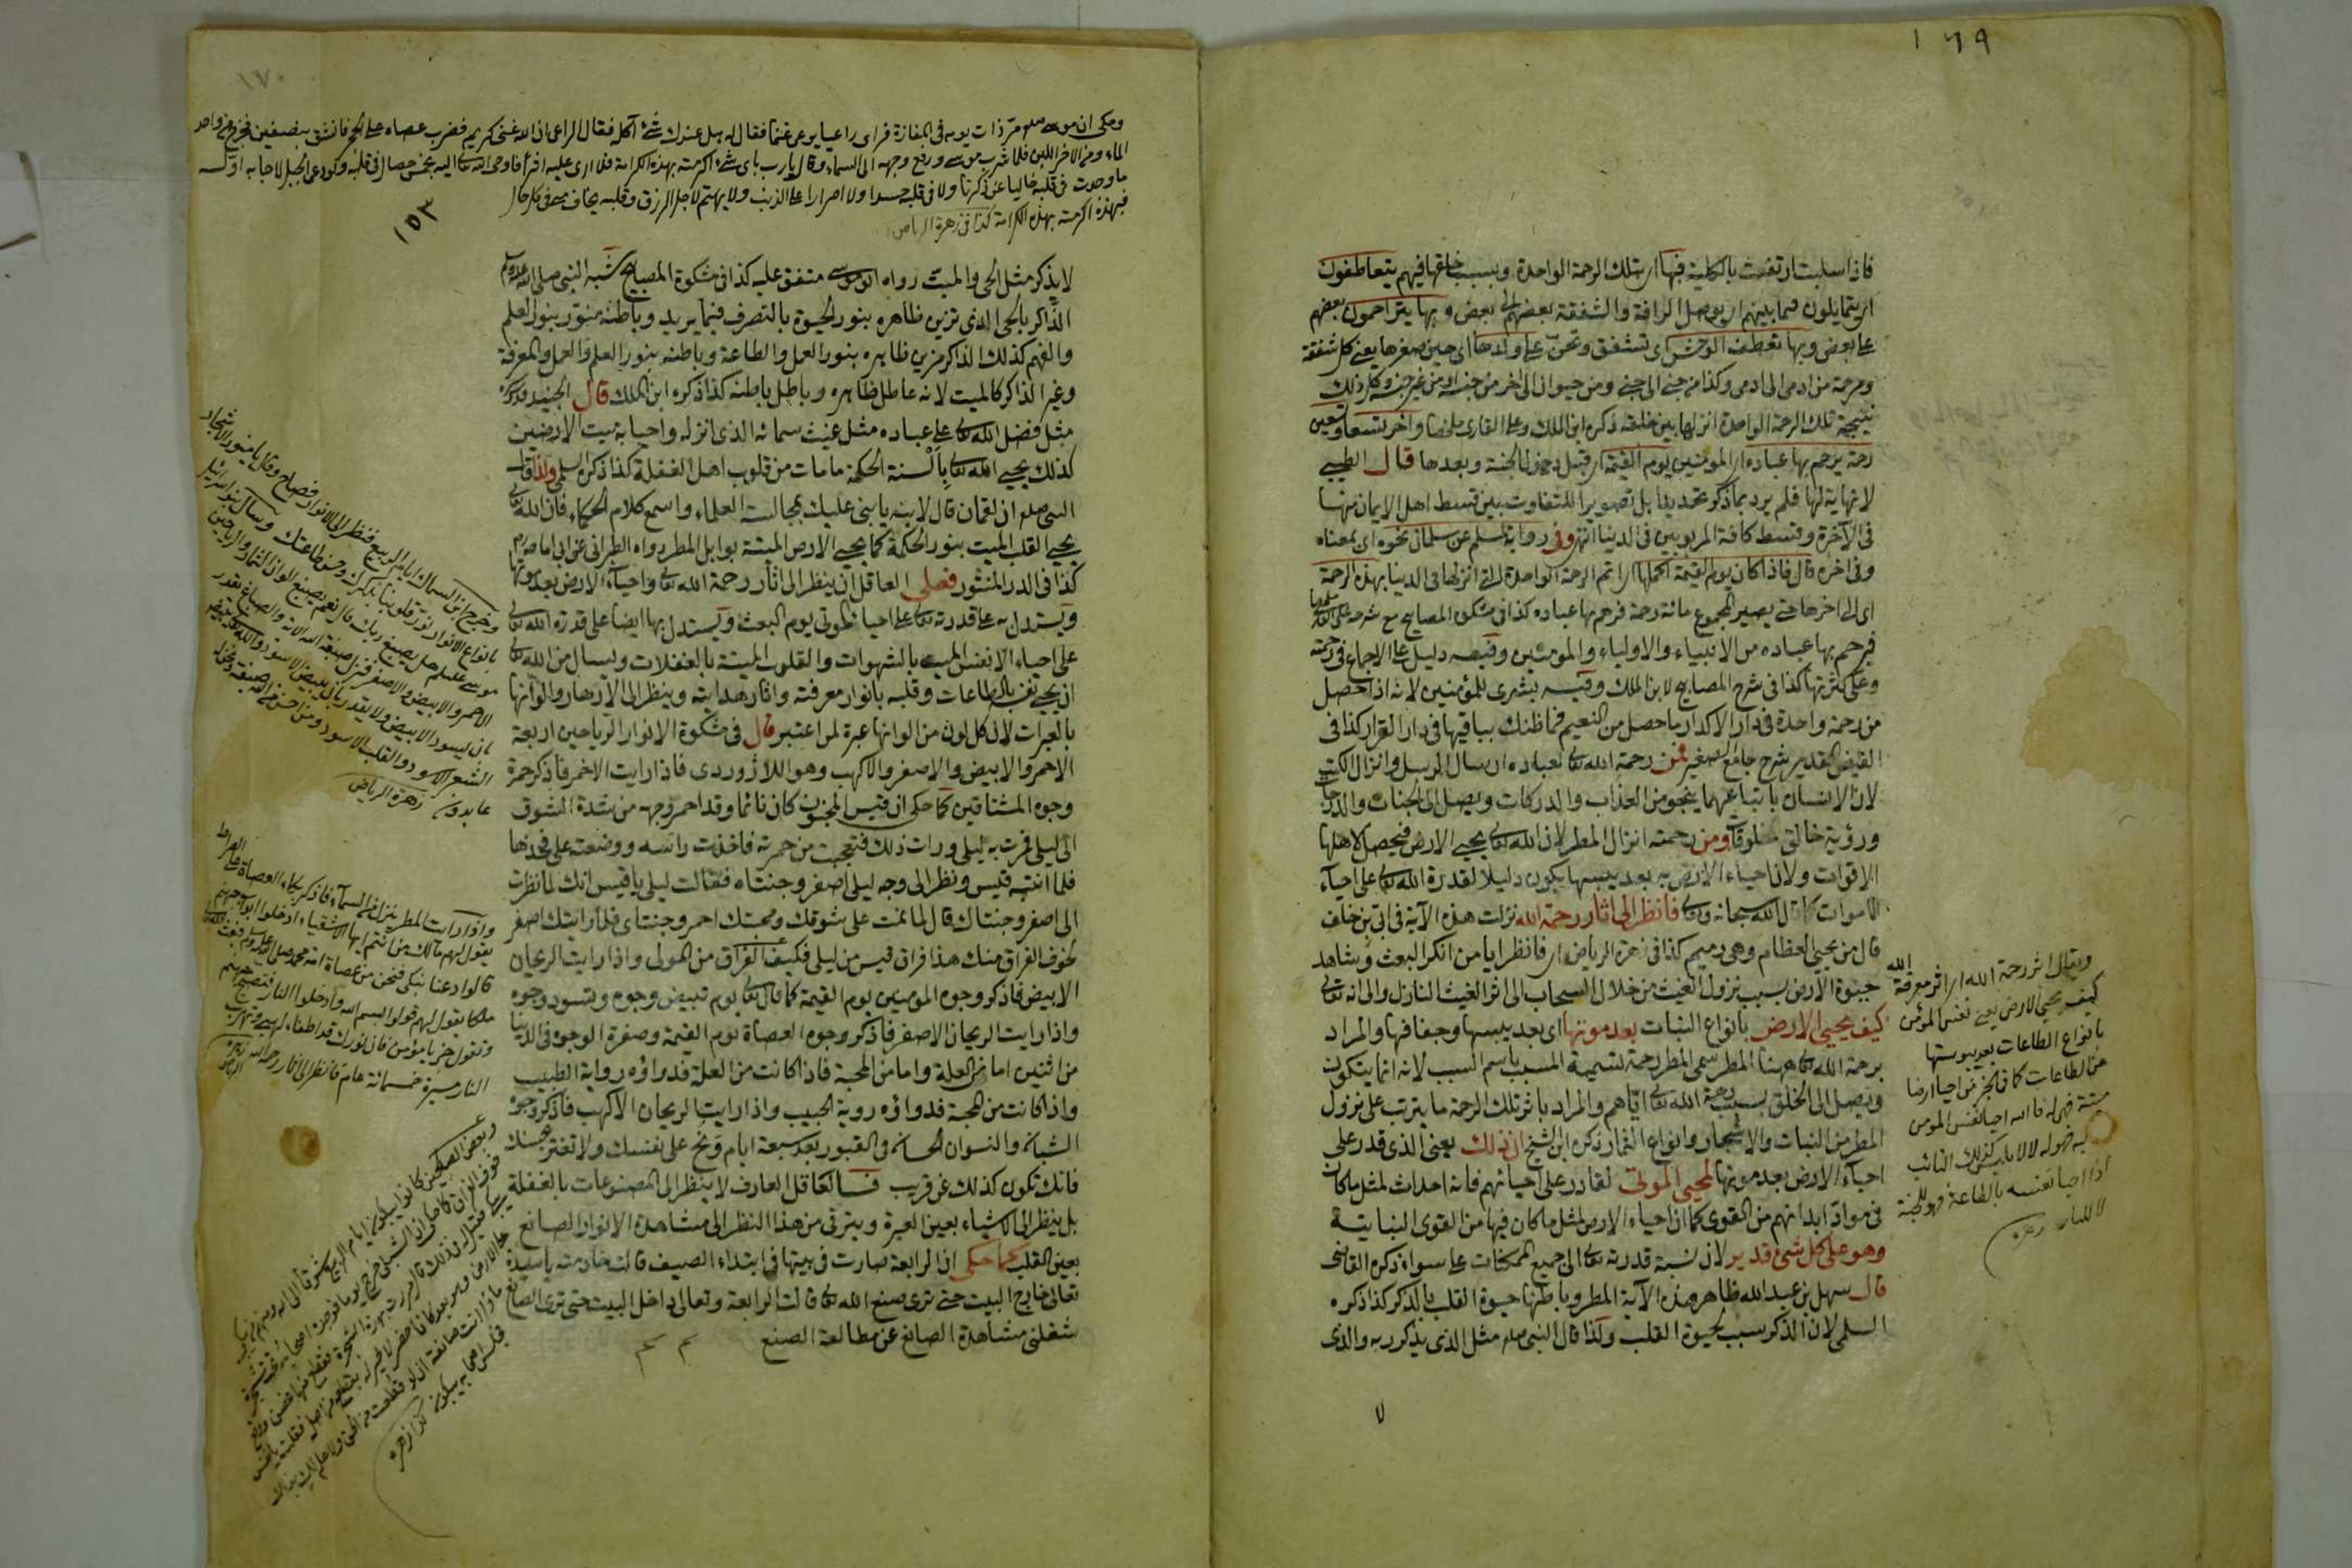 ١٦٩
فاذا سلبت ارتفعت بالكلية فبها اى بتلك الرحمة الواحدة وبسبب خلقها فيهم يتعاطفون
اى يتمايلون فيما بينهم اى يوصل الرافة والشفقة بعضهم الى بعض وبها يتراحمون بعضهم
على بعض وبها تعطف الوحش اى تشفق وتحن على ولدها اى حين صغرها يعنى كل شفقة
ومرحمة من ادمى الى ادمى وكذا من جنى الى جنى ومن حيوان الى اخر من جنسه او من غير جنسه وكل ذلك
نتيجة تلك الرحمة الواحدة انزلها بين خلقه ذكره ابن الملك وعلى القارى واخر تسعا وتسعين
رحمة يرحم بها عباده اى المؤمنين يوم القيمة اى قبل دخول الجنة وبعدها قال الطيبى
لا نهاية لها فلم يرد بما ذكر تحديدا بل تصويرا للتفاوت بين قسط اهل الايمان منها
فى الآخرة وقسط كافة المربوبين فى الدنيا انتهى وفى رواية لمسلم عن سلمان نحوه اى بمعناه
وفى اخره قال فاذا كان يوم القيمة اكملها اى اتم الرحمة الواحدة التى انزلها فى الدنيا بهذه الرحمة
اى التى اخرها حتى يصير المجموع مائة رحمة فرحم بها عباده كذا فى مشكوة المصابيح مع شرحه على القارى
فيرحم بها عباده من الانبياء والاولياء والمؤمنين وفيه دليل على الاجماع فى رحمته
وعلى كثرتها كذا فى شرح المصابيح لابن الملك وفيه بشرى للمؤمنين لانه اذا حصل
من رحمة واحدة فى دار الاكدار ما حصل من النعيم فما ظنك بباقيها فى دار القرار كذا فى
الفيض القدير شرح جامع الصغير فمن رحمة الله تعالى لعباده ارسال الرسل وانزال الكتب
لان الانسان باتباعهما ينجو من العذاب والدركات ويصل الى الجنات والدرجات
ورؤية خالق المخلوقات ومن رحمته انزال المطر لان الله تعالى يحيى الارض فيحصل لاهلها
الاقوات ولان احياء الارض به بعد يبسها يكون دليلا لقدرة الله تعالى على احياء
الاموات كما قال الله سبحانه وتعالى فانظر الى اثار رحمة الله نزلت هذه الآية فى ابى بن خلف
قال من يحيى العظام وهى رميم كذا فى زهرة الرياض اى فانظر ايا من انكر البعث وشاهد
حيوة الارض بسبب نزول الغيث من خلال السحاب الى اثر الغيث النازل والى انه تعالى
كيف يحيى الارض بانواع النبات بعد موتها اى بعد يبسها وجفافها والمراد
برحمة الله تعالى ههنا المطر سمى المطر رحمة لتسمية المسبب باسم السبب لانه انما يتكون
ويصل الى الخلق بسبب رحمة الله تعالى اياهم والمراد باثر تلك الرحمة ما يترتب على نزول
المطر من النبات والاشجار وانواع الثمار ذكره ابن الشيخ ان ذلك يعنى الذى قدر على
احياء الارض بعد موتها لمحيى الموتى لقادر على احيائهم فانه احداث لمثل ما كان
فى مواد ابدانهم من القوى كما ان احياء الارض لمثل ما كان فيها من القوى النباتية
وهو على كل شئ قدير لان نسبة قدرته تعالى الى جميع الممكنات على سواء ذكره القاضى
قال سهل بن عبد الله ظاهر هذه الآية المطر وباطنها حيوة القلب بالذكر كذا ذكره
السلمى لان الذكر سبب لحيوة القلب ولذا قال النبى صلعم مثل الذى يذكر ربه والذى
ويقال اثر رحمة الله اى اثر معرفة الله
كيف يحيى الارض يعنى نفس المؤمن
بانواع الطاعات بعد يبوستها
عن الطاعات كما فى الخبر من احيا ارضا
ميتة فهى له فالله احيا نفس المؤمن
كذلك التائب
اذا احيا نفسه بالطاعة فهو للجنة
لا للنار
١٧٠
وحكى ان موسى عليه السلام مر ذات يوم فى المفازة فراى راعيا يرعى غنما فقال له هل عندك شئ آكله فقال الراعى ان الله غنى كريم فضرب عصاه على الحجر فانشق بنصفين فخرج من واحد
الماء ومن الاخر اللبن فلما شرب موسى ورفع وجهه الى السماء وقال يا رب باى شئ اكرمته بهذه الكرامة فاوحى الله تعالى اليه بخمس خصال فى قلبه
ما وجدت فى قلبه خاليا عن ذكرنا ولا فى قلبه حسدا ولا اصرارا على الذنب ولا يهتم لاجل الرزق وقلبه يخاف منى فى كل حال
فبهذه اكرمته بهذه الكرامة كذا فى زهرة الرياض
١٥٣
لا يذكر مثل الحى والميت رواه ابو موسى متفق عليه كذا فى مشكوة المصابيح شبه النبى صلى الله عليه وسلم
الذاكر بالحى الذى تزين ظاهره بنور الحيوة بالتصرف فيما يريد وباطنه منور بنور العلم
والفهم كذلك الذاكر مزين ظاهره بنور العمل والطاعة وباطنه بنور العلم والعمل والمعرفة
وغير الذاكر كالميت لانه عاطل ظاهره وباطل باطنه كذا ذكره ابن الملك قال الجنيد قدس سره
مثل فضل الله تعالى على عباده مثل غيث سمائه الذى انزله واحيا به ميت الارضين
كذلك يحيى الله تعالى بالسنة الحكمة ما مات من قلوب اهل الغفلة كذا ذكره السلمى ولذا قال
النبى صلعم ان لقمان قال لابنه يا بنى عليك بمجالسة العلماء واسمع كلام الحكماء فان الله تعالى
يحيى القلب الميت بنور الحكمة كما يحيى الارض الميتة بوابل المطر رواه الطبرانى عن ابى امامة رض
كذا فى الدر المنثور فعلى العاقل ان ينظر الى اثار رحمة الله تعالى واحياء الارض بعد موتها
ويستدل به على قدرته تعالى على احياء الموتى يوم البعث ويستدل بها ايضا على قدرة الله تعالى
على احياء الانفس الميت بالشهوات والقلوب الميتة بالغفلات ويسال من الله تعالى
ان يحيى نفسه بالطاعات وقلبه بانوار معرفته واثار هدايته وينظر الى الازهار والوانها
بالعبرات لان كل لون من الوانها عبرة لمن اعتبر قال فى مشكوة الانوار الرياحين اربعة
الاحمر والابيض والاصفر والاكهب وهو اللاژوردى فاذا رايت الاحمر فاذكر حمرة
وجوه المشتاقين كما حكى ان قيس المجنون كان نائما وقد احمر وجهه من شدة الشوق
الى ليلى فمرت به ليلى ورات ذلك فتعجبت من حمرته فاخذت راسه ووضعته على فخذها
فلما انتبه قيس ونظر الى وجه ليلى اصفر وجنتاه فقالت ليلى يا قيس انك لما نظرت
الى اصفر وجنتاك قال لما نمت على شوقك ومحبتك احمر وجنتاى فلما رايتك اصفر
لخوف الفراق منك هذا فراق قيس من ليلى فكيف الفراق من المولى واذا رايت الريحان
الابيض فاذكر وجوه المؤمنين يوم القيمة كما قال تعالى يوم تبيض وجوه وتسود وجوه
واذا رايت الريحان الاصفر فاذكر وجوه العصاة يوم القيمة وصفرة الوجوه فى الدنيا
من اثنين اما من العلة واما من المحبة فاذا كانت من العلة فدواؤه رواية الطبيب
واذا كانت من المحبة فدواؤه روية الحبيب واذا رايت الريحان الاكهب فاذكر وجوه
الشبان والنسوان الحسان فى القبور بعد سبعة ايام ونح على نفسك ولا تغتر بحسنك
فانك تكون كذلك عن قريب فالعاقل العارف لا ينظر الى المصنوعات بالغفلة
بل ينظر الى الاشياء بعين العبرة ويترقى من هذا النظر الى مشاهدة الانوار الصانع
بعين القلب كما حكى ان الرابعة صارت فى بيتها فى ابتداء الصيف قالت خادمته يا سيدة
تعالى خارج البيت حتى ترى صنع الله تعالى قالت الرابعة وتعالى داخل البيت حتى ترى الصانع
شغلنى مشاهدة الصانع عن مطالعة الصنع
وخرج ابن السماك ايام الربيع فنظر الى الانوار فصاح وقال يا منور الاشجار
بانواع الانوار نور قلوبنا بذكرك وحسن طاعتك وسأل بنو اسرائيل
موسى عليه السلام هل يصبغ ربك قال نعم يصبغ الوان الثمار والرياحين
الاحمر والابيض والاصفر
بان يسود الابيض ولا يقدر بان يبيض الاسود والله
الشعر الاسود والقلب الاسود ومن احسن من الله صبغة ونحن له
عابدون زهرة الرياض
واذا رايت المطر ينزل من السماء فاذكر بكاء العصاة على الصراط
يقول لهم مالك من انتم ايها الاشقياء ادخلوا ابواب جهنم
قالوا دعنا نبكى فنحن من عصاة امة محمد صلى الله عليه وسلم
ملكا يقول لهم قولوا بسم الله وادخلوا النار فتصيح جهنم
وتقول جز يا مؤمن فان نورك قد اطفاء لهبى فتهرب
النار مسيرة خمسمائة عام فانظر الى اثار رحمة الله زهرة الرياض